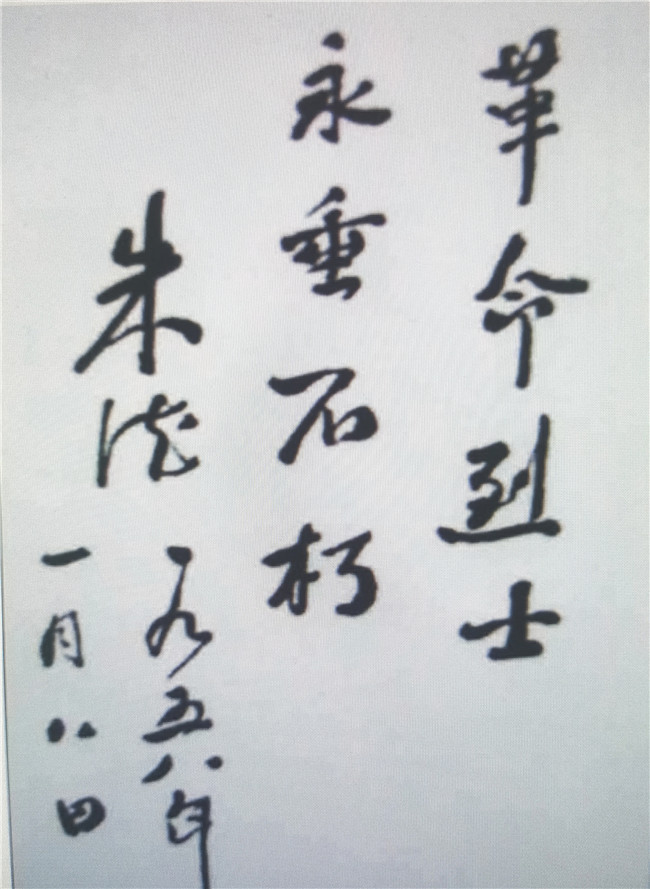 革命烈士
永垂不朽
朱德
一九五八年
一月八日